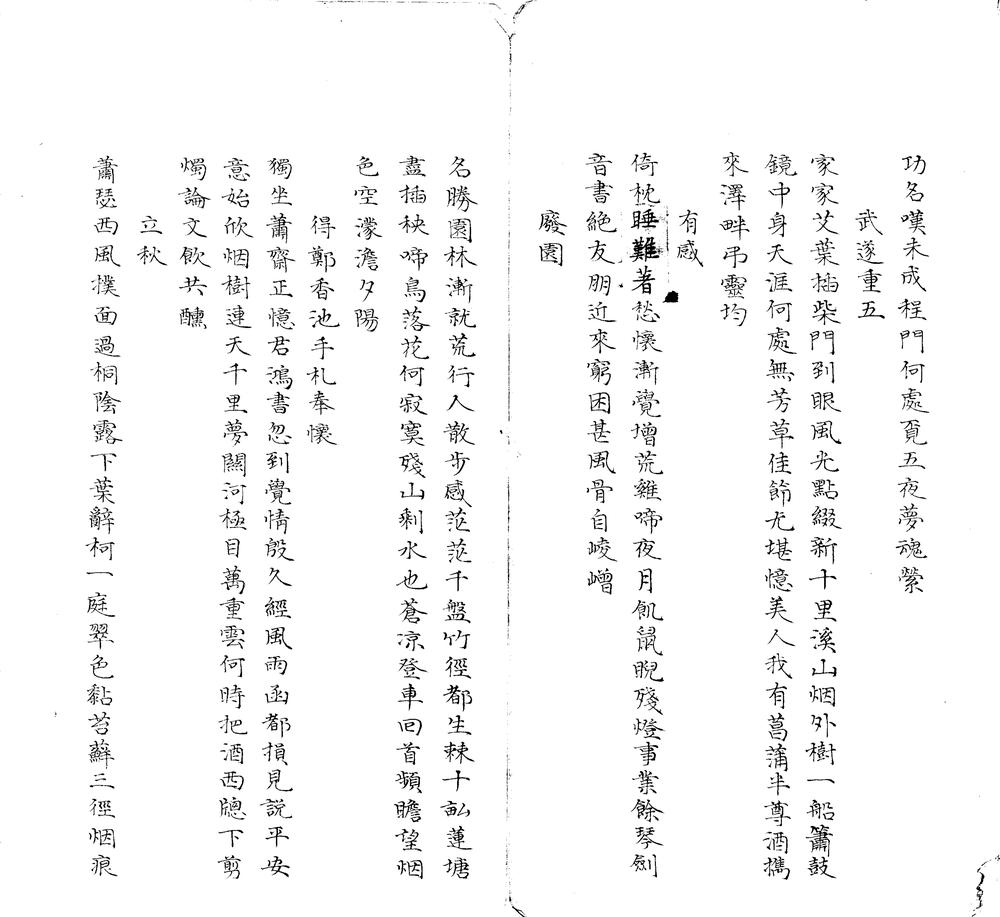 功名嘆未成程門何處覔五夜夢魂縈
武遂重五
家家艾葉插柴門到眼風光點綴新十里溪山烟外樹一船簫鼓
鏡中身天涯何處無芳草佳節尤堪憶美人我有菖蒲半尊酒攜
來澤畔弔靈均
有感
倚枕睡難著愁懷漸覺增荒雞啼夜月飢鼠睨殘燈事業餘琴劍
音書絕友朋近來窮困甚風骨自崚嶒
廢園
名勝園林漸就荒行人散步感茫茫千盤竹徑都生棘十畝蓮塘
盡插秧啼鳥落花何寂寞殘山剩水也蒼凉登車回首頻瞻望烟
色空濛澹夕陽
得鄭香池手札奉懷
獨坐蕭齋正憶君鴻書忽到覺情殷久經風雨函都損見説平安
意始欣烟樹連天千里夢關河極目萬重雲何時把酒西牕下剪
燭論文飲共醺
立秋
蕭瑟西風撲面過桐陰露下葉辭柯一庭翠色黏苔蘚三徑烟痕